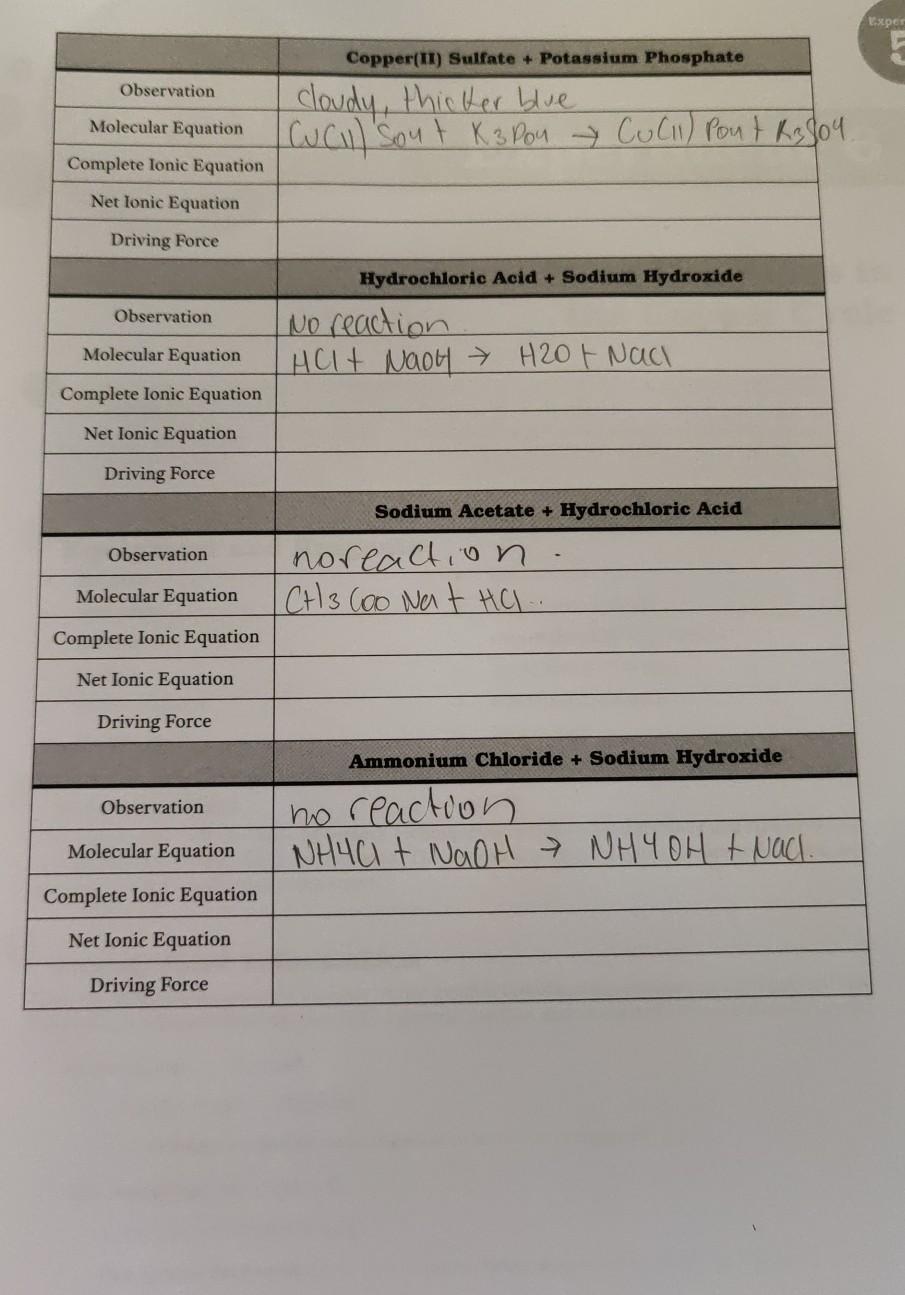 Exper
5
Copper(II) Sulfate + Potassium Phosphate
Observation cloudy, thicker blue
Molecular Equation Cu(II) SO4 + K3PO4 → Cu(II) PO4 + K3SO4.
Complete Ionic Equation
Net Ionic Equation
Driving Force
Hydrochloric Acid + Sodium Hydroxide
Observation No reaction.
Molecular Equation HCl + NaOH → H2O + NaCl
Complete Ionic Equation
Net Ionic Equation
Driving Force
Sodium Acetate + Hydrochloric Acid
Observation no reaction.
Molecular Equation CH3COO Na + HCl..
Complete Ionic Equation
Net Ionic Equation
Driving Force
Ammonium Chloride + Sodium Hydroxide
Observation no reaction
Molecular Equation NH4Cl + NaOH → NH4OH + NaCl.
Complete Ionic Equation
Net Ionic Equation
Driving Force